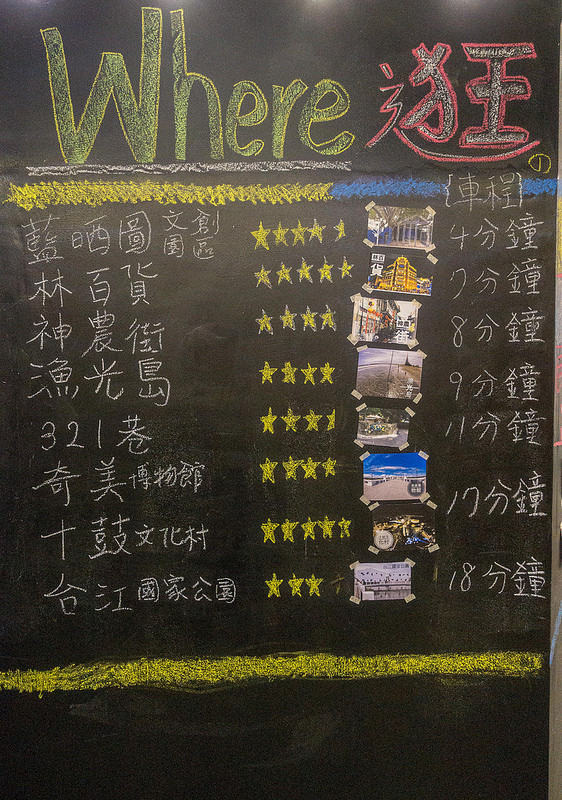 Where 逛の
{車程}
藍晒圖文創園區 4分鐘
林百貨 7分鐘
神農街 8分鐘
漁光島 9分鐘
321巷 11分鐘
奇美博物館
17分鐘
十鼓文化村
台江國家公園 18分鐘